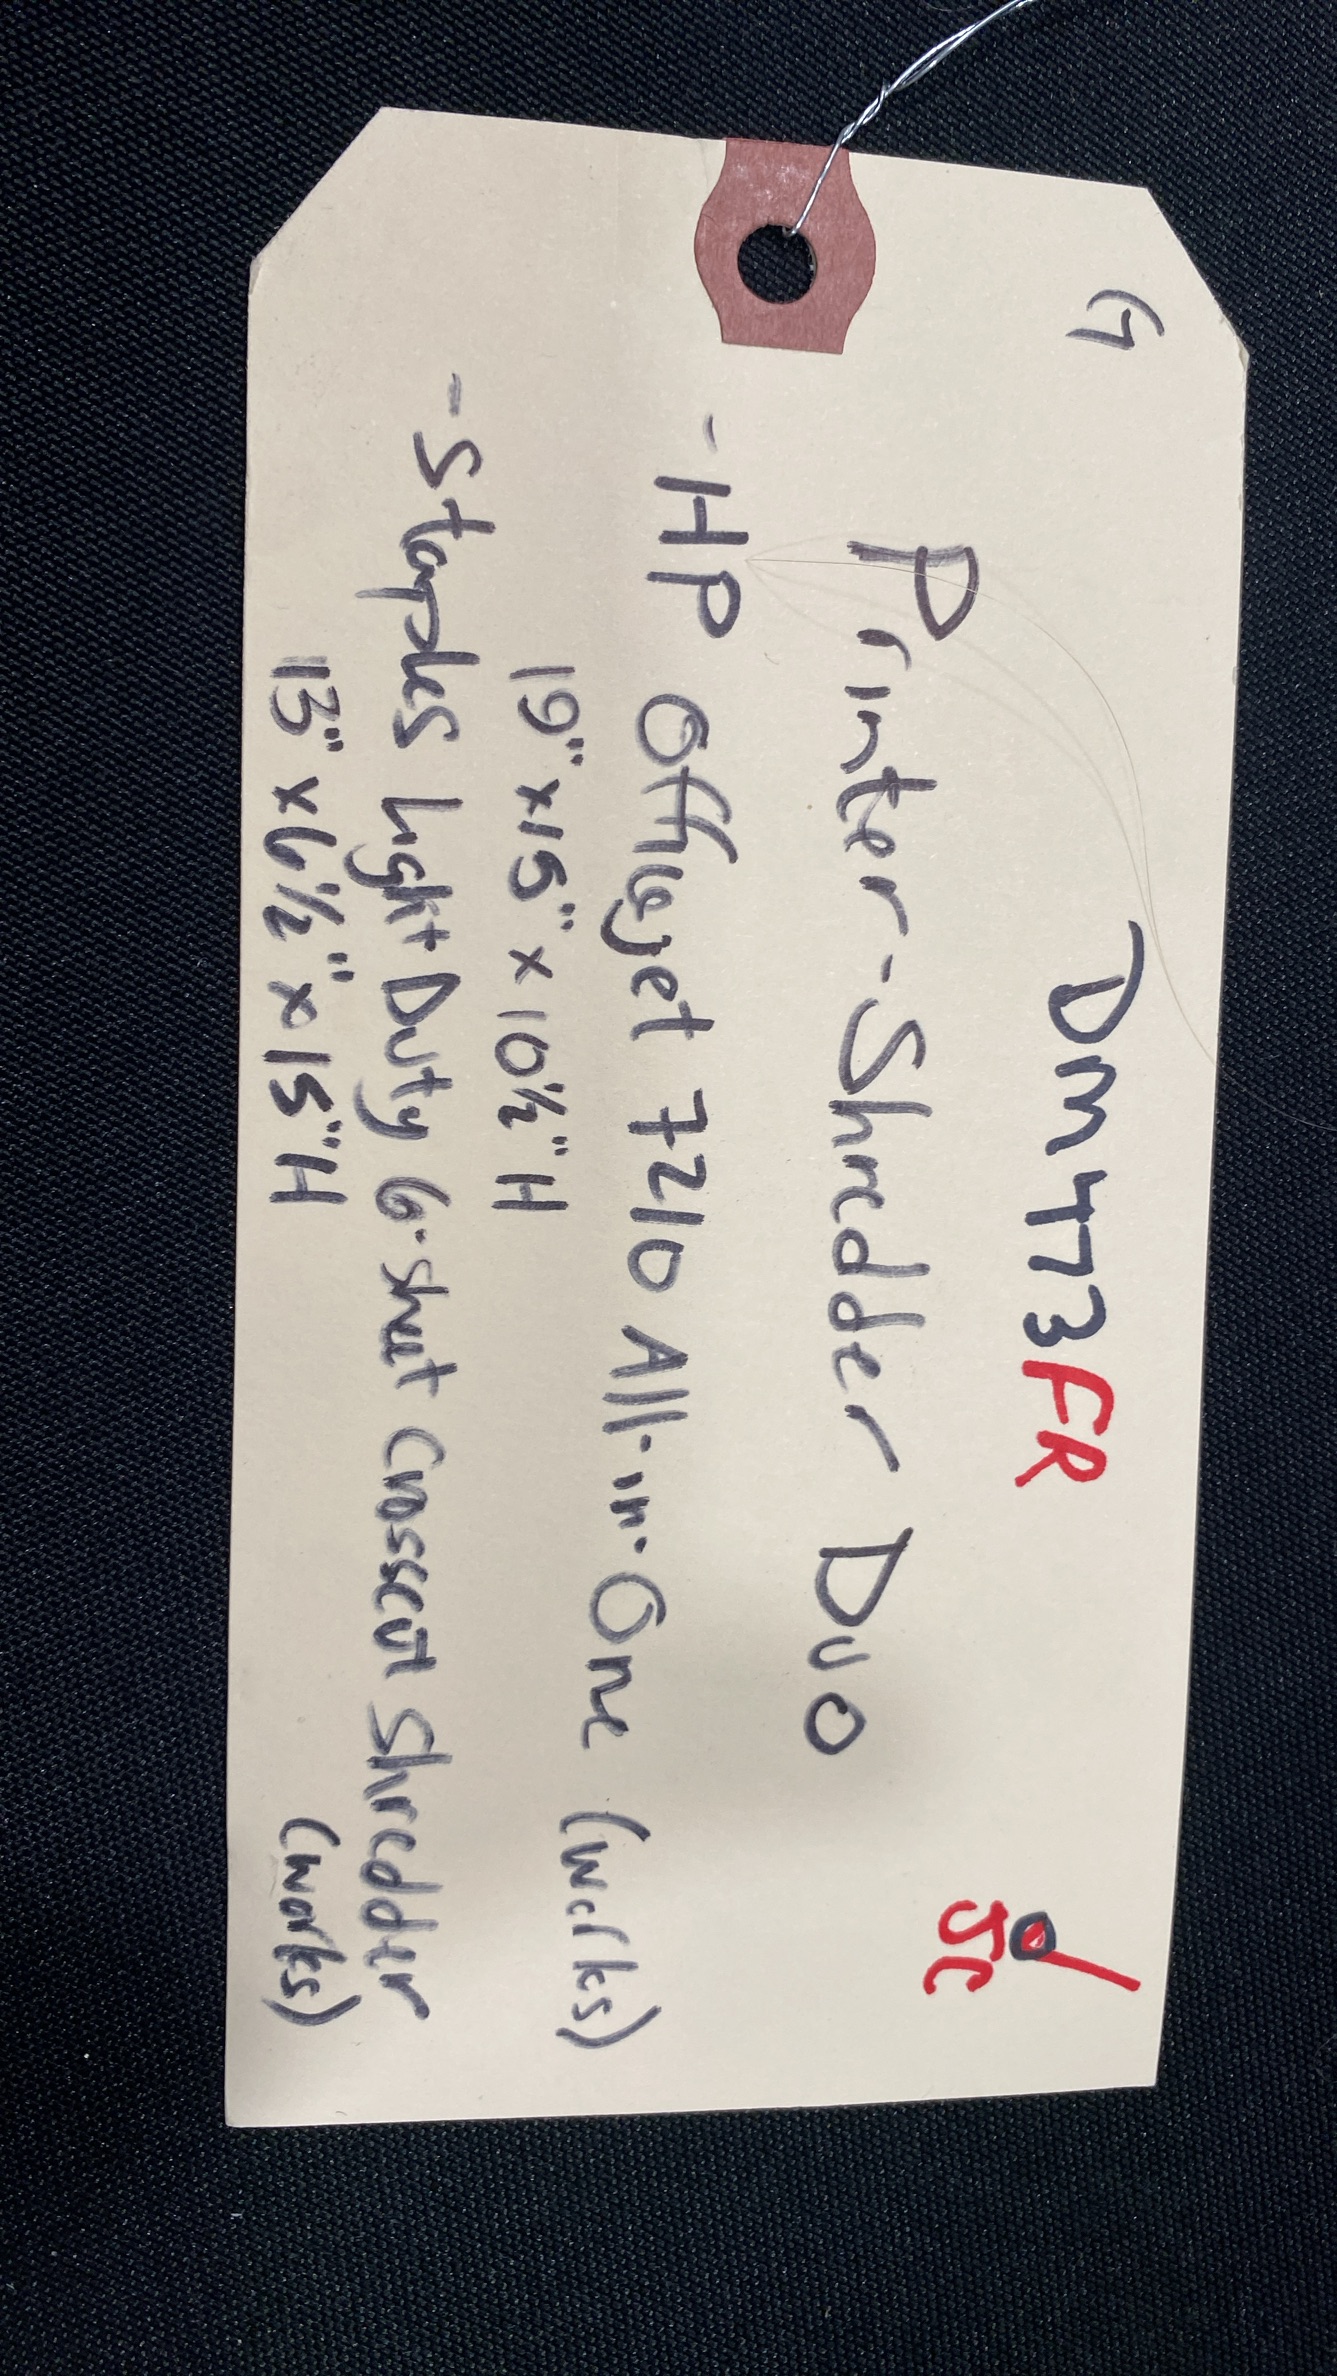 G
DM473FR
JC
Printer-Shredder Duo
-HP Officejet 7210 All-in-One (works)
19" x15" x 10½" H
-Staples Light Duty 6-sheet Crosscut Shredder
13" x 6½" x 15" H (works)